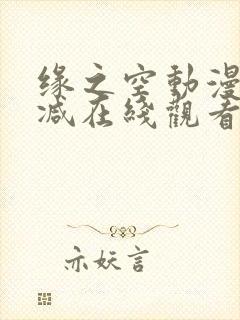 缘之空動漫
减在綫觀看
亦妖言